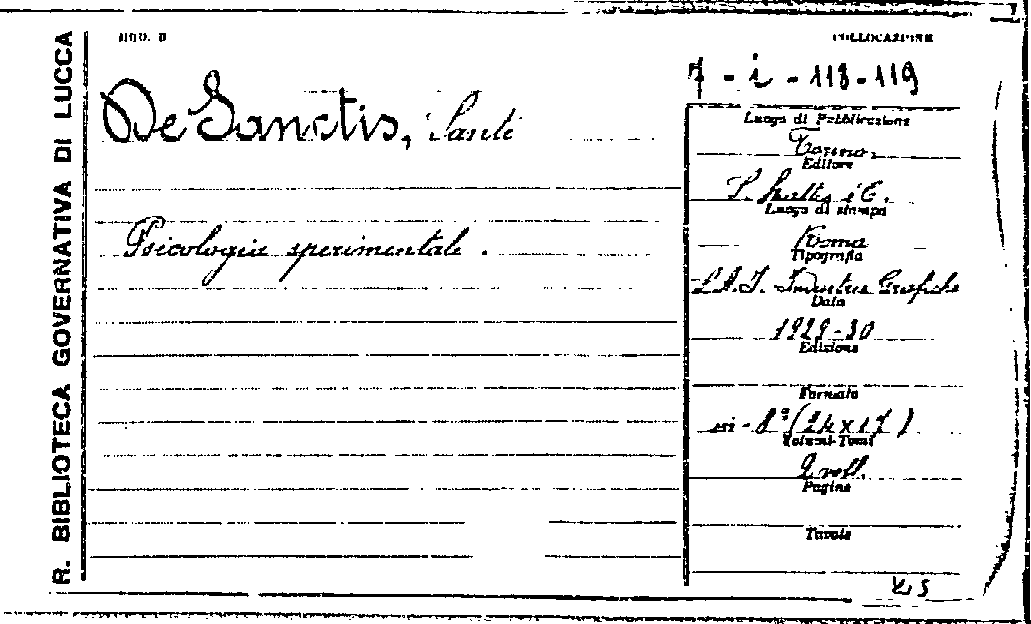 R. BIBLIOTECA GOVERNATIVA DI LUCCA
MOD. B
COLLOCAZIONE
7 - i - 118-119
De Sanctis, Sante
Psicologia sperimentale.
Luogo di Pubblicazione
Editore
Luogo di stampa
Roma
Tipografia
S.A.I. Industrie Grafiche
Data
1929-30
Edizione
Formato
in-8° (24x17)
Volumi-Tomi
2 voll.
Pagine
Tavole